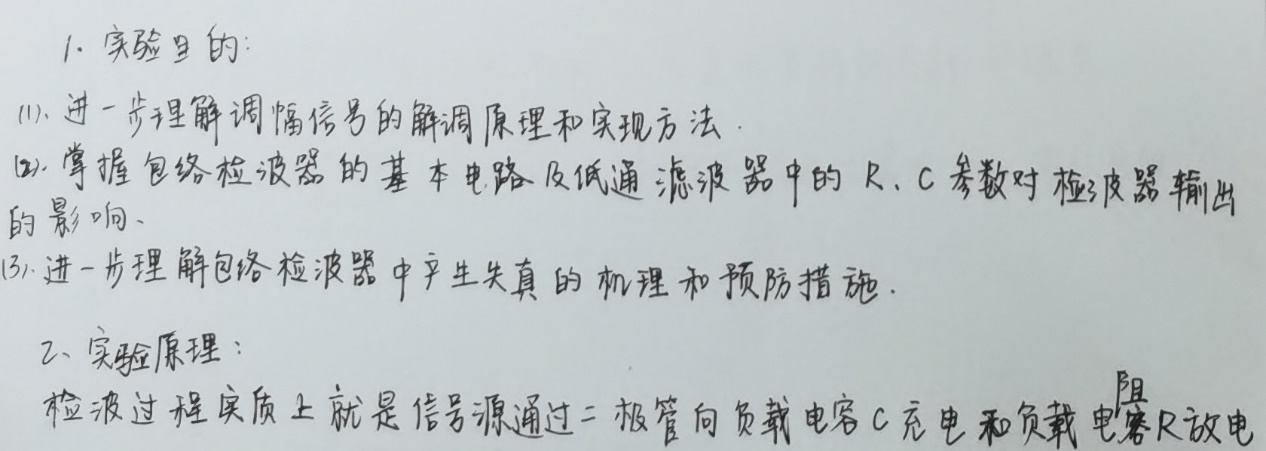 1. 实验目的:
(1). 进一步理解调幅信号的解调原理和实现方法.
(2). 掌握包络检波器的基本电路及低通滤波器中的 R、C 参数对检波器输出
的影响、
(3). 进一步理解包络检波器中产生失真的机理和预防措施.
2、实验原理:
检波过程实质上就是信号源通过二极管向负载电容C充电和负载电阻R放电